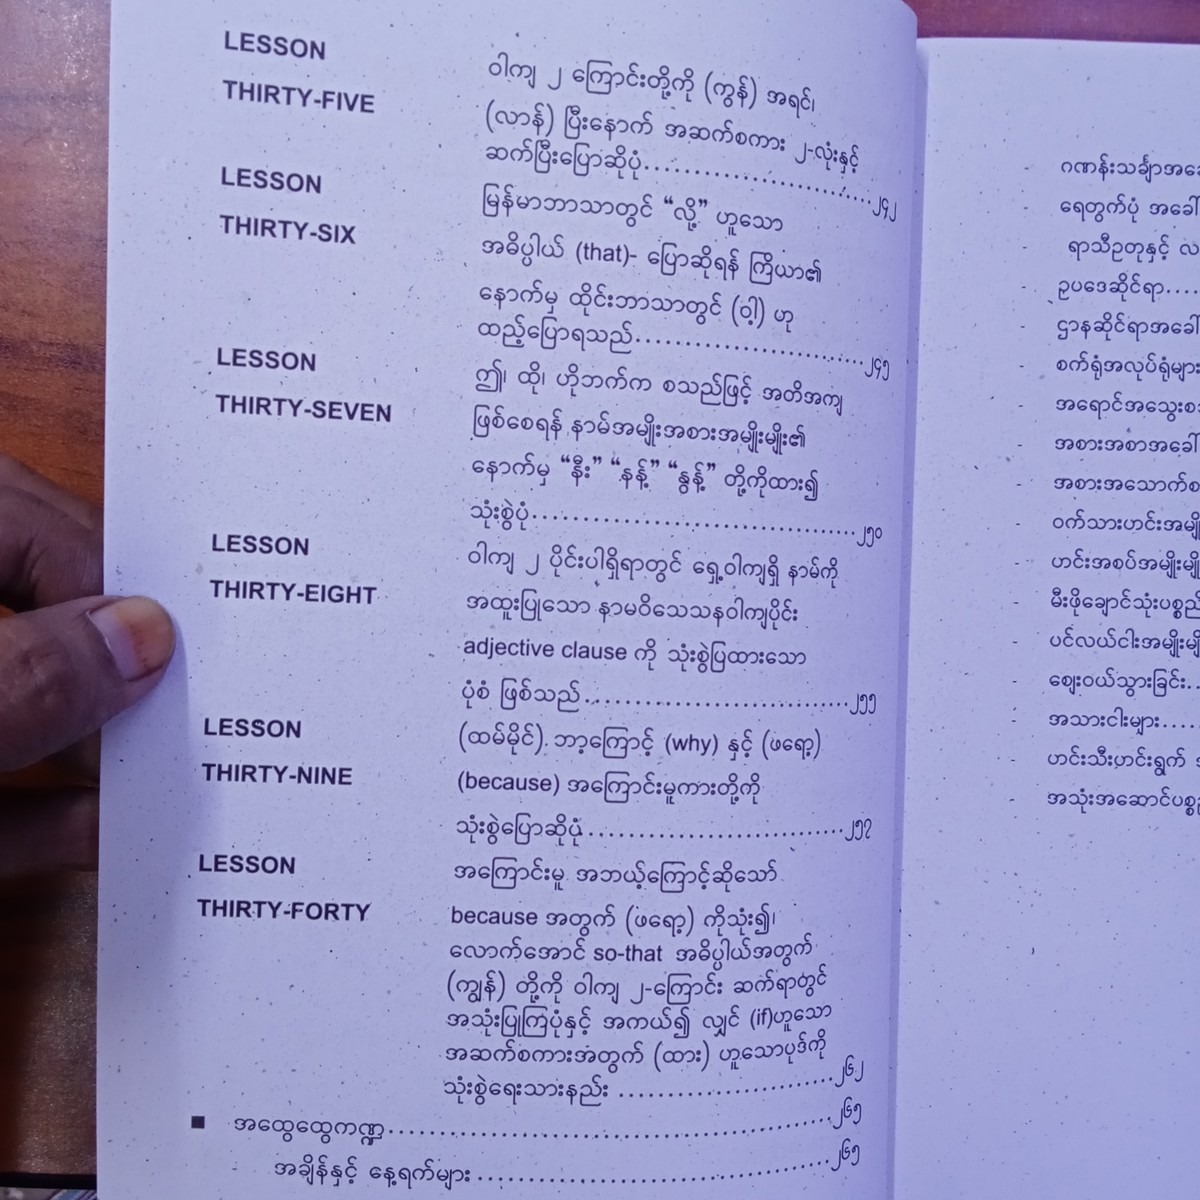 LESSON
THIRTY-FIVE
ဝါကျ ၂ ကြောင်းတို့ကို (ကွန်) အရင်၊
(လာန်) ပြီးနောက် အဆက်စကား ၂-လုံးနှင့်
ဆက်ပြီးပြောဆိုပုံ........................................၂၄၂
LESSON
THIRTY-SIX
မြန်မာဘာသာတွင် “လို့” ဟူသော
အဓိပ္ပါယ် (that)- ပြောဆိုရန် ကြိယာ၏
နောက်မှ ထိုင်းဘာသာတွင် (ဝါ့) ဟု
ထည့်ပြောရသည်........................................၂၄၅
LESSON
THIRTY-SEVEN
ဤ၊ ထို၊ ဟိုဘက်က စသည်ဖြင့် အတိအကျ
ဖြစ်စေရန် နာမ်အမျိုးအစားအမျိုးမျိုး၏
နောက်မှ “နီး” “နန့်” “နွန့်” တို့ကိုထား၍
သုံးစွဲပုံ........................................၂၅၀
LESSON
THIRTY-EIGHT
ဝါကျ ၂ ပိုင်းပါရှိရာတွင် ရှေ့ဝါကျရှိ နာမ်ကို
အထူးပြုသော နာမဝိသေသနဝါကျပိုင်း
adjective clause ကို သုံးစွဲပြထားသော
ပုံစံ ဖြစ်သည်........................................၂၅၅
LESSON
THIRTY-NINE
(ထမ်မိုင်) ဘာ့ကြောင့် (why) နှင့် (ဖရော့)
(because) အကြောင်းမူကားတို့ကို
သုံးစွဲပြောဆိုပုံ........................................၂၅၇
LESSON
THIRTY-FORTY
အကြောင်းမူ အဘယ့်ကြောင့်ဆိုသော်
because အတွက် (ဖရော့) ကိုသုံး၍၊
လောက်အောင် so-that အဓိပ္ပါယ်အတွက်
(ကျွန်) တို့ကို ဝါကျ ၂-ကြောင်း ဆက်ရာတွင်
အသုံးပြုကြပုံနှင့် အကယ်၍ လျှင် (if)ဟူသော
အဆက်စကားအတွက် (ထား) ဟူသောပုဒ်ကို
သုံးစွဲရေးသားနည်း ........................................၂၆၂
■ အထွေထွေကဏ္ဍ........................................၂၆၅
အချိန်နှင့် နေ့ရက်များ........................................၂၆၅
ဂဏန်းသင်္ချာအခေါ်
- ရေတွက်ပုံ အခေါ်
- ရာသီဥတုနှင့် လ
- ဥပဒေဆိုင်ရာ....
- ဌာနဆိုင်ရာအခေါ်
- စက်ရုံအလုပ်ရုံများ
- အရောင်အသွေးစ
- အစားအစာအခေါ်
- အစားအသောက်စ
- ဝက်သားဟင်းအမျို
- ဟင်းအစပ်အမျိုးမျို
- မီးဖိုချောင်သုံးပစ္စည်
- ပင်လယ်ငါးအမျိုးမျို
- ဈေးဝယ်သွားခြင်း...
- အသားငါးများ....
- ဟင်းသီးဟင်းရွက်
- အသုံးအဆောင်ပစ္စည်